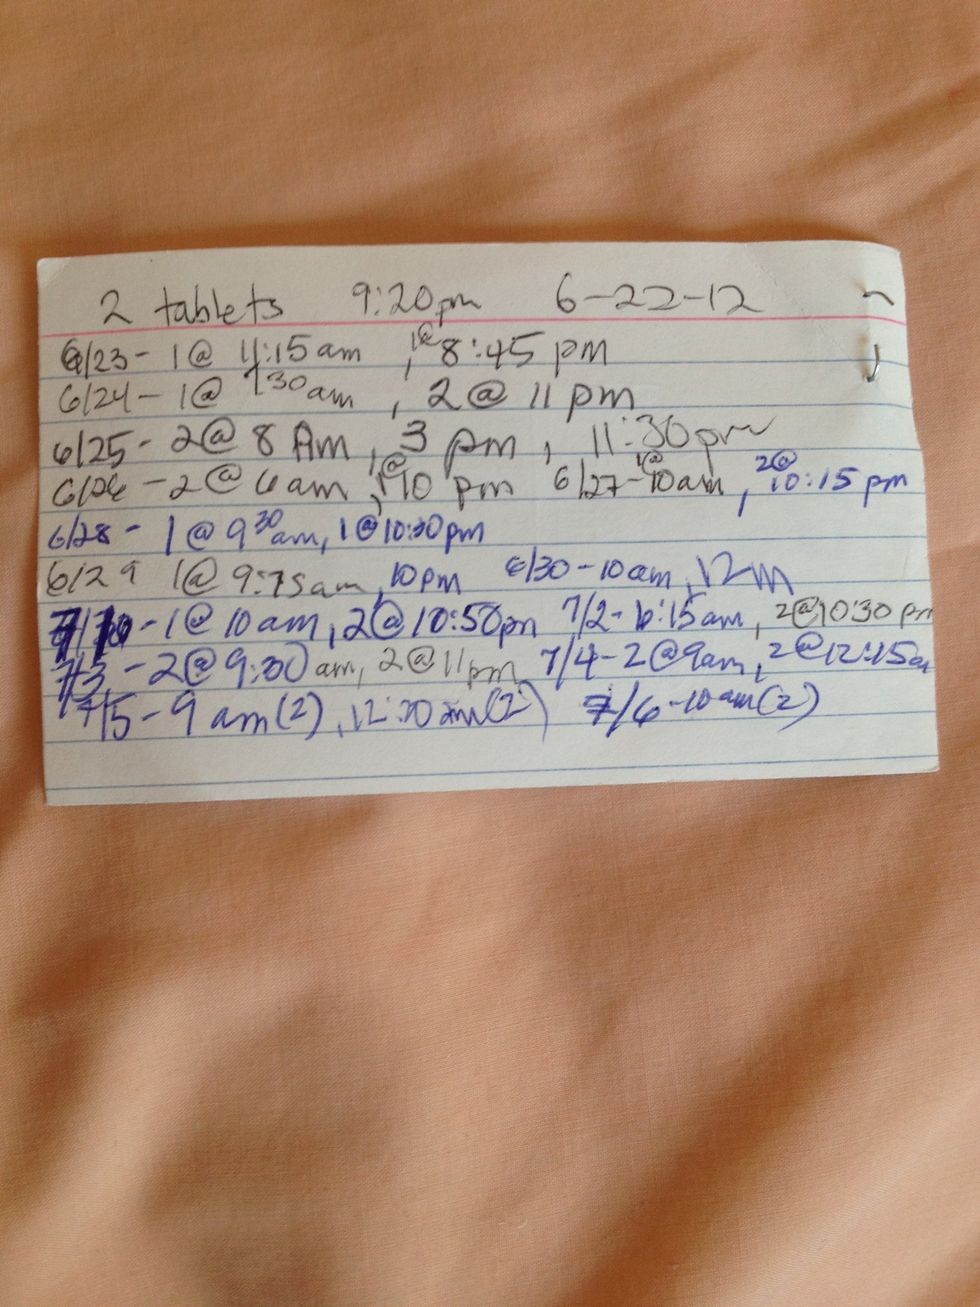 2 tablets 9:20pm 6-22-12
6/23 - 1 @ 11:15 am , 1@ 8:45 pm
6/24 - 1 @ 730 am , 2 @ 11 pm
6/25 - 2 @ 8 Am , 3 pm , 11:30 pm
6/26 - 2 @ 6 am , 1@ 10 pm 6/27 - 1@ 10 am , 2@ 10:15 pm
6/28 - 1 @ 930 am, 1 @ 10:30 pm
6/29 1 @ am, 10 pm 6/30 - 10 am , 12
- 1 @ 10 am , 2 @ 10:50 pm 7/2 - am , 2 @ 10:30 pm
7/3 - 2 @ 9:30 am, 2 @ 11 pm 7/4 - 2 @ 9am, 2 @ 12:15 a
7/5 - 9 am (2) , (2) 7/6 - 10 am (2)